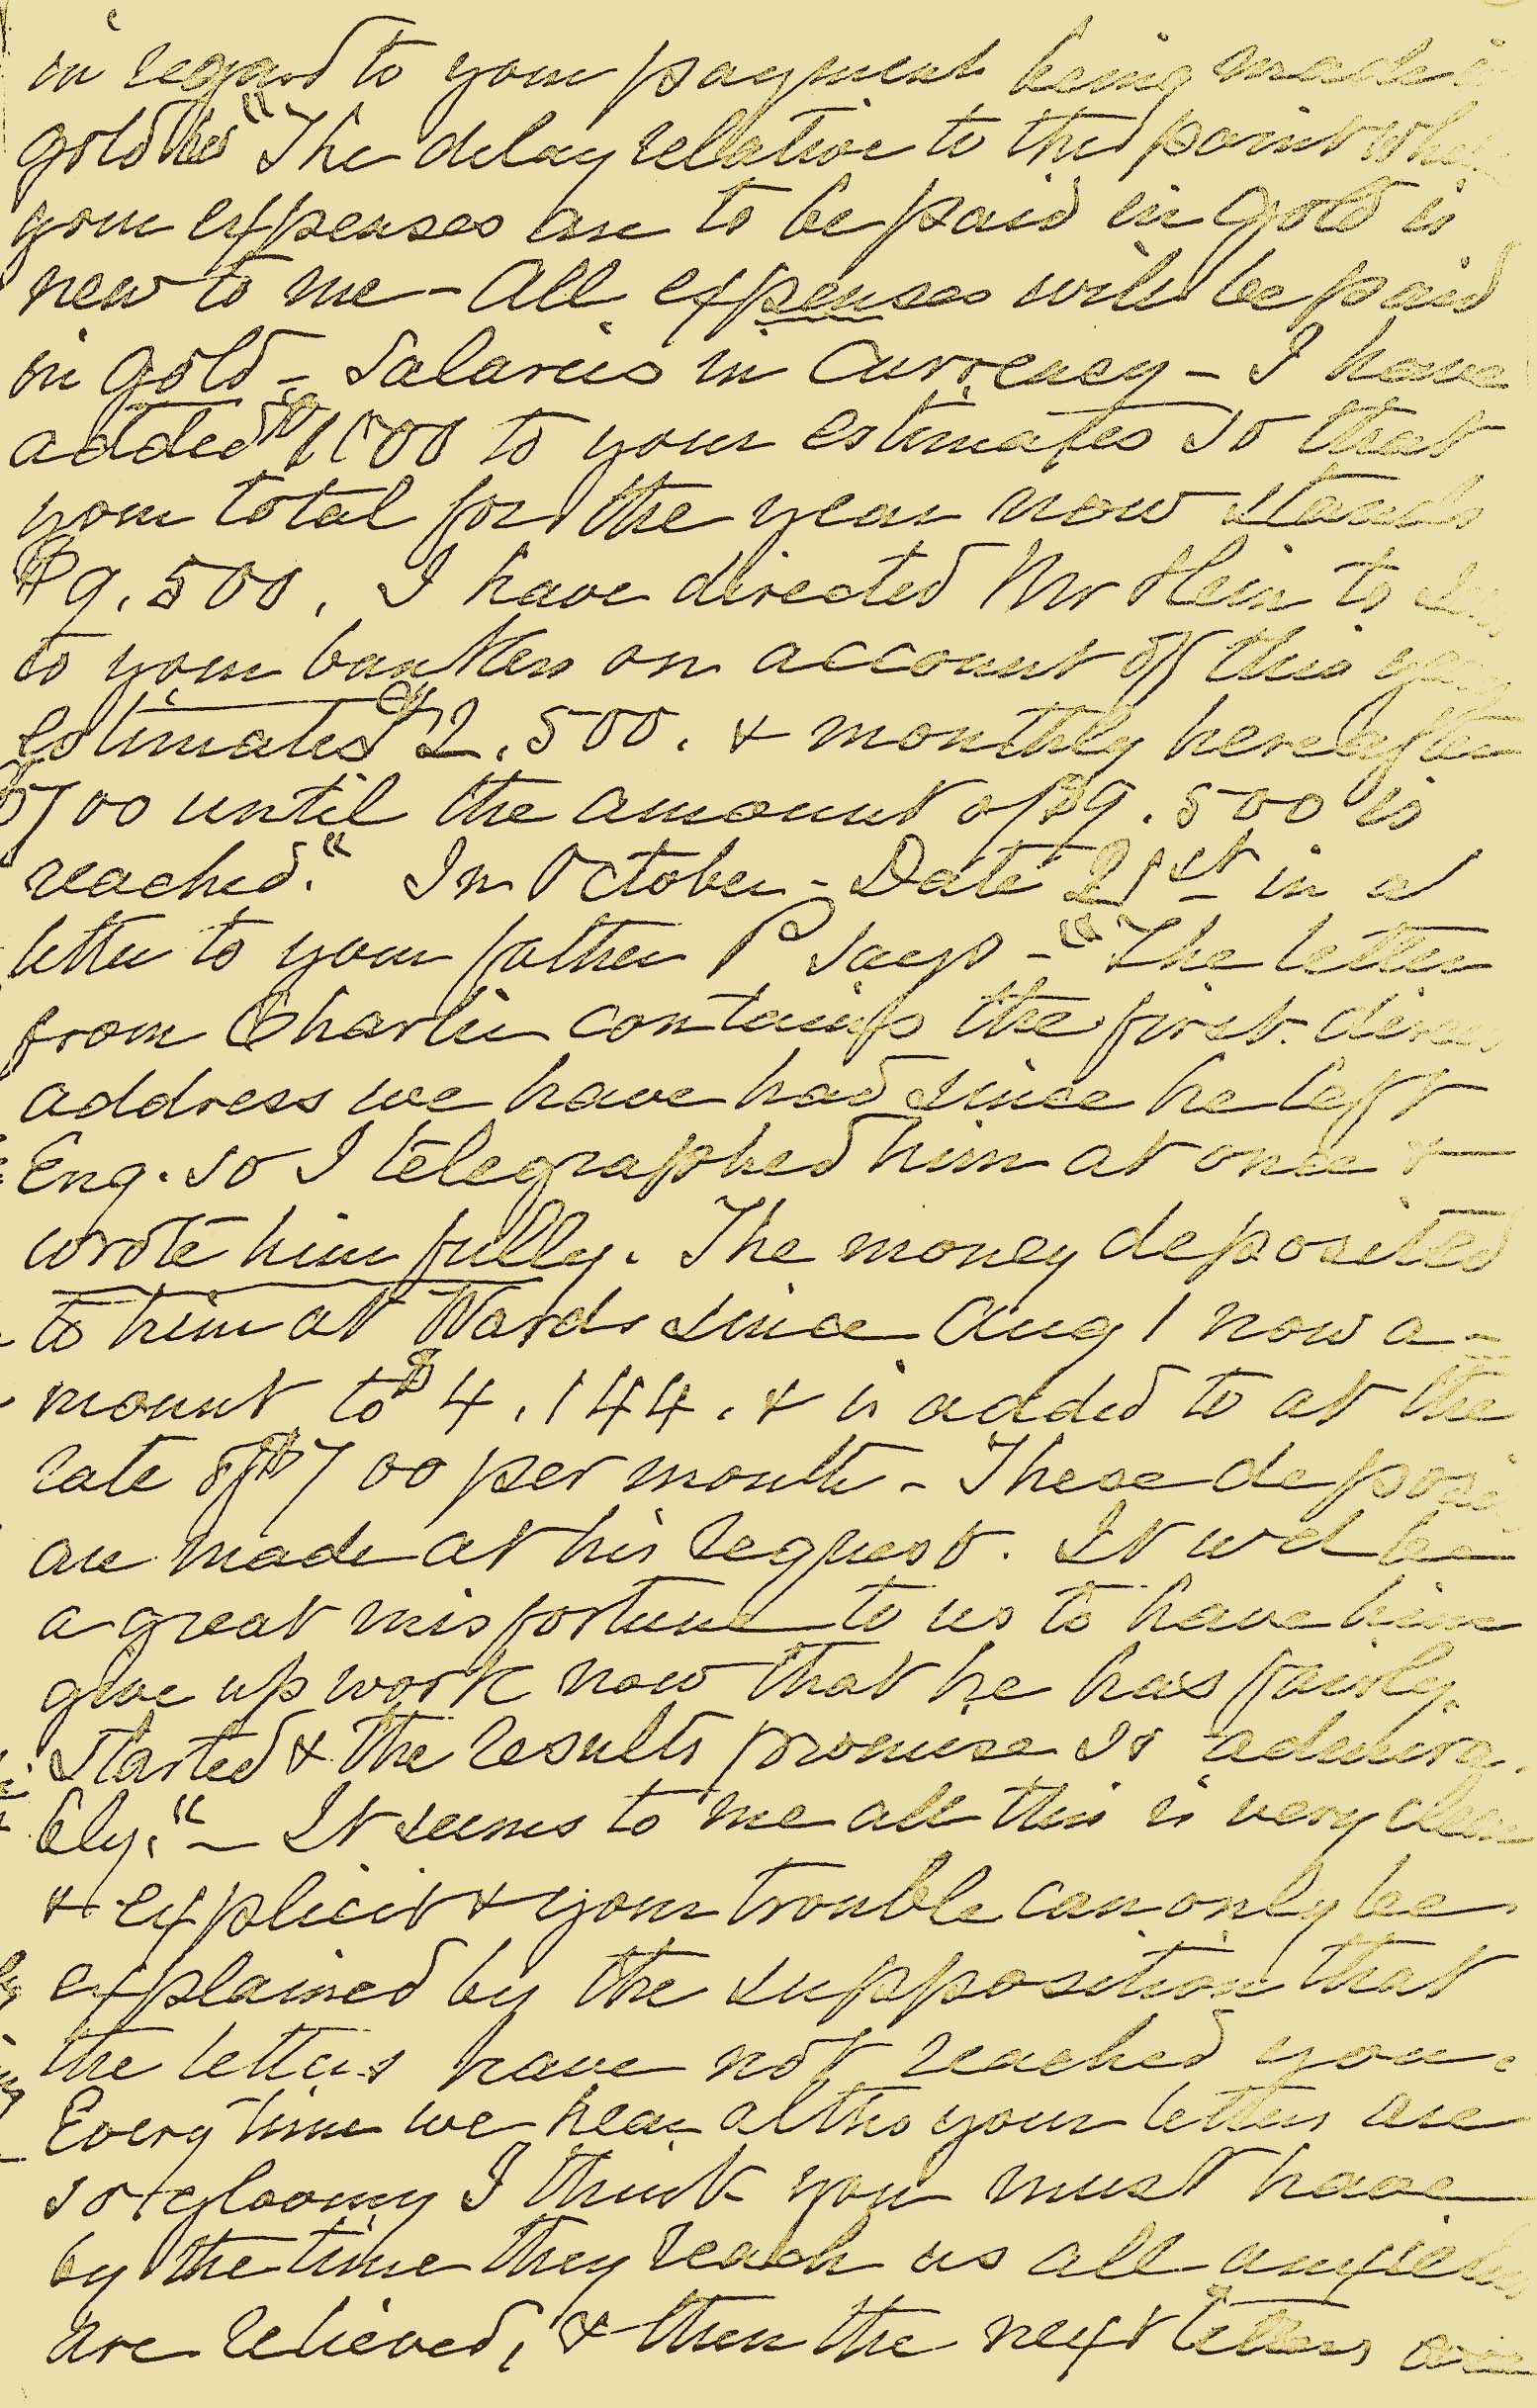 in regard to your payment being made in
gold his "The delay rellative to the point whe
your expenses are to be paid in gold is
new to me - All expenses will be paid
in gold - Salaries in Currency - I have
added $1000 to your estimates so that
your total for the year now stands
$9.500. I have directed Mr Hein to
to your bankers on account of this year
estimates $2.500. & monthly hereafter
$700 until the amount of $9.500 is
reached." In October - Date 21st in a
letter to your father P says - "The letter
from Charlie contains the first direct
address we have had since he left
Eng. so I telegraphed him at once &
wrote him fully. The money deposited
to him at Wards since Aug 1 now a-
mount to $4.144. & is added to at the
rate of $700 per month - These deposits
are made at his request. It wd be
a great misfortune to us to have him
give up work now that he has fairly
started & the results promise so admira-
bly." - It seems to me all this is very clear
& explicit & your trouble can only be
explained by the supposition that
the letters have not reached you.
Every time we hear altho your letters are
so gloomy I think you must have
by the time they reach us all anxieties
are relieved, & then the next letters are